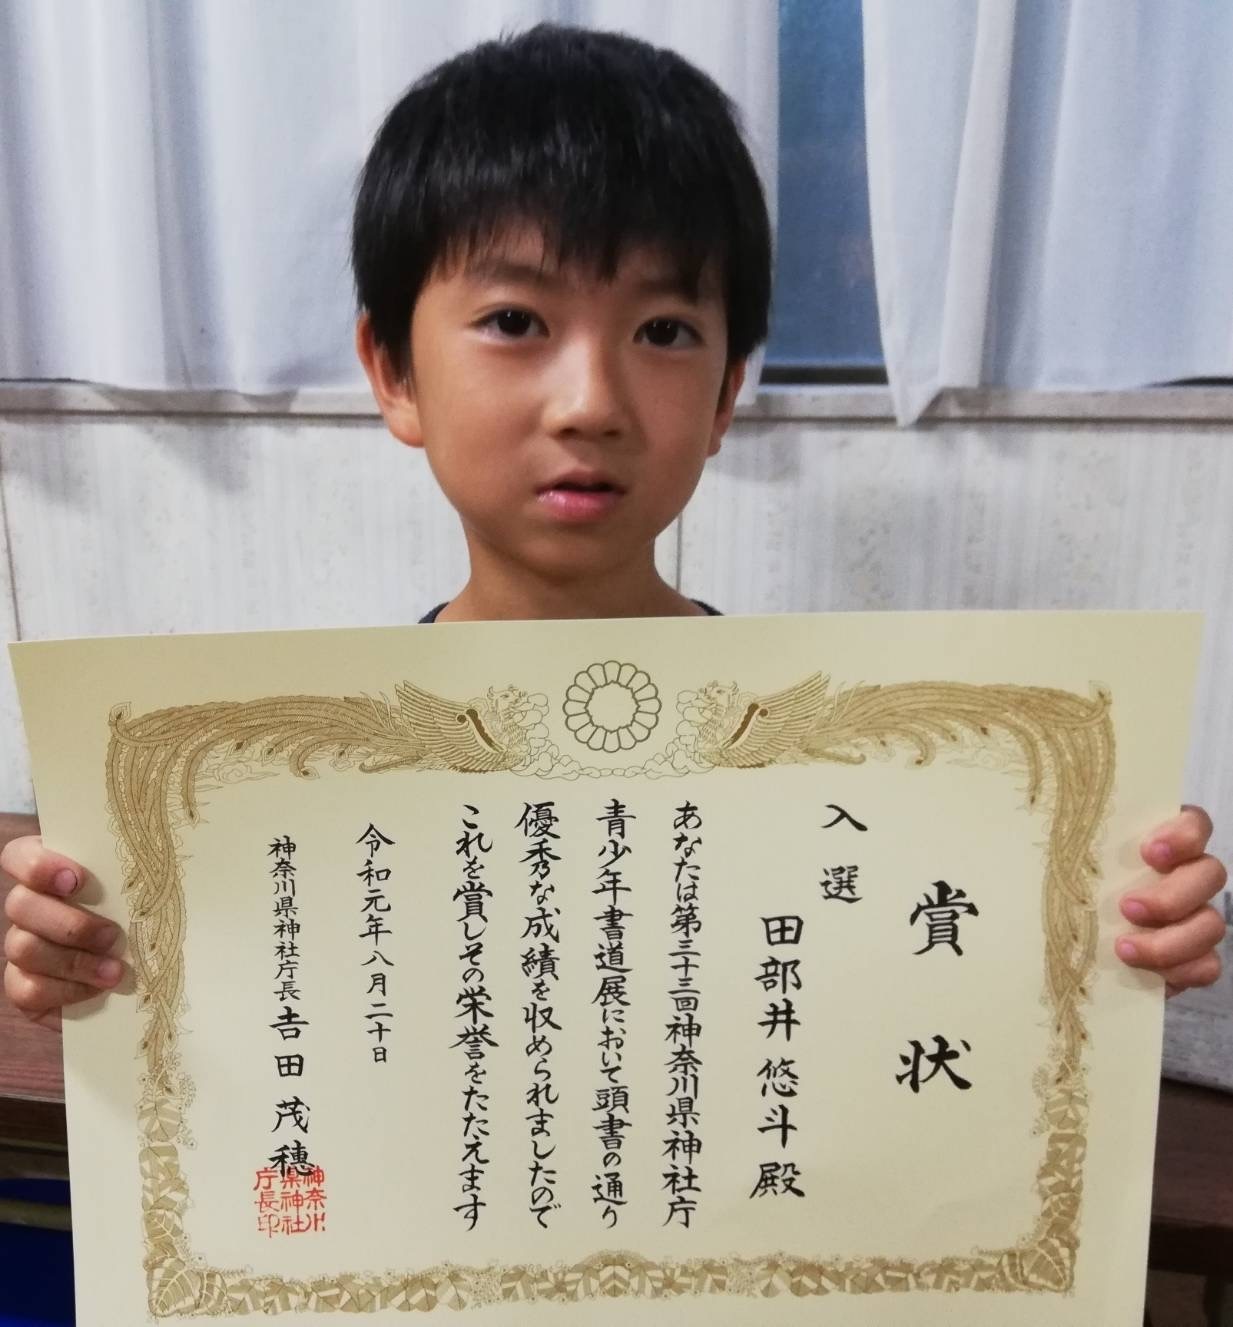 賞状
入選
田部井悠斗殿
あなたは第三十三回神奈川県神社庁
青少年書道展において頭書の通り
優秀な成績を収められましたので
これを賞しその栄誉をたたえます
令和元年八月二十日
神奈川県神社庁長 吉田茂穗
神奈川
県神社
庁長印